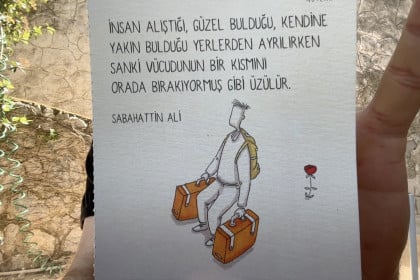 İNSAN ALIŞTIĞI, GÜZEL BULDUĞU, KENDİNE
YAKIN BULDUĞU YERLERDEN AYRILIRKEN
SANKİ VÜCUDUNUN BİR KISMINI
ORADA BIRAKIYORMUŞ GİBİ ÜZÜLÜR.
SABAHATTİN ALİ